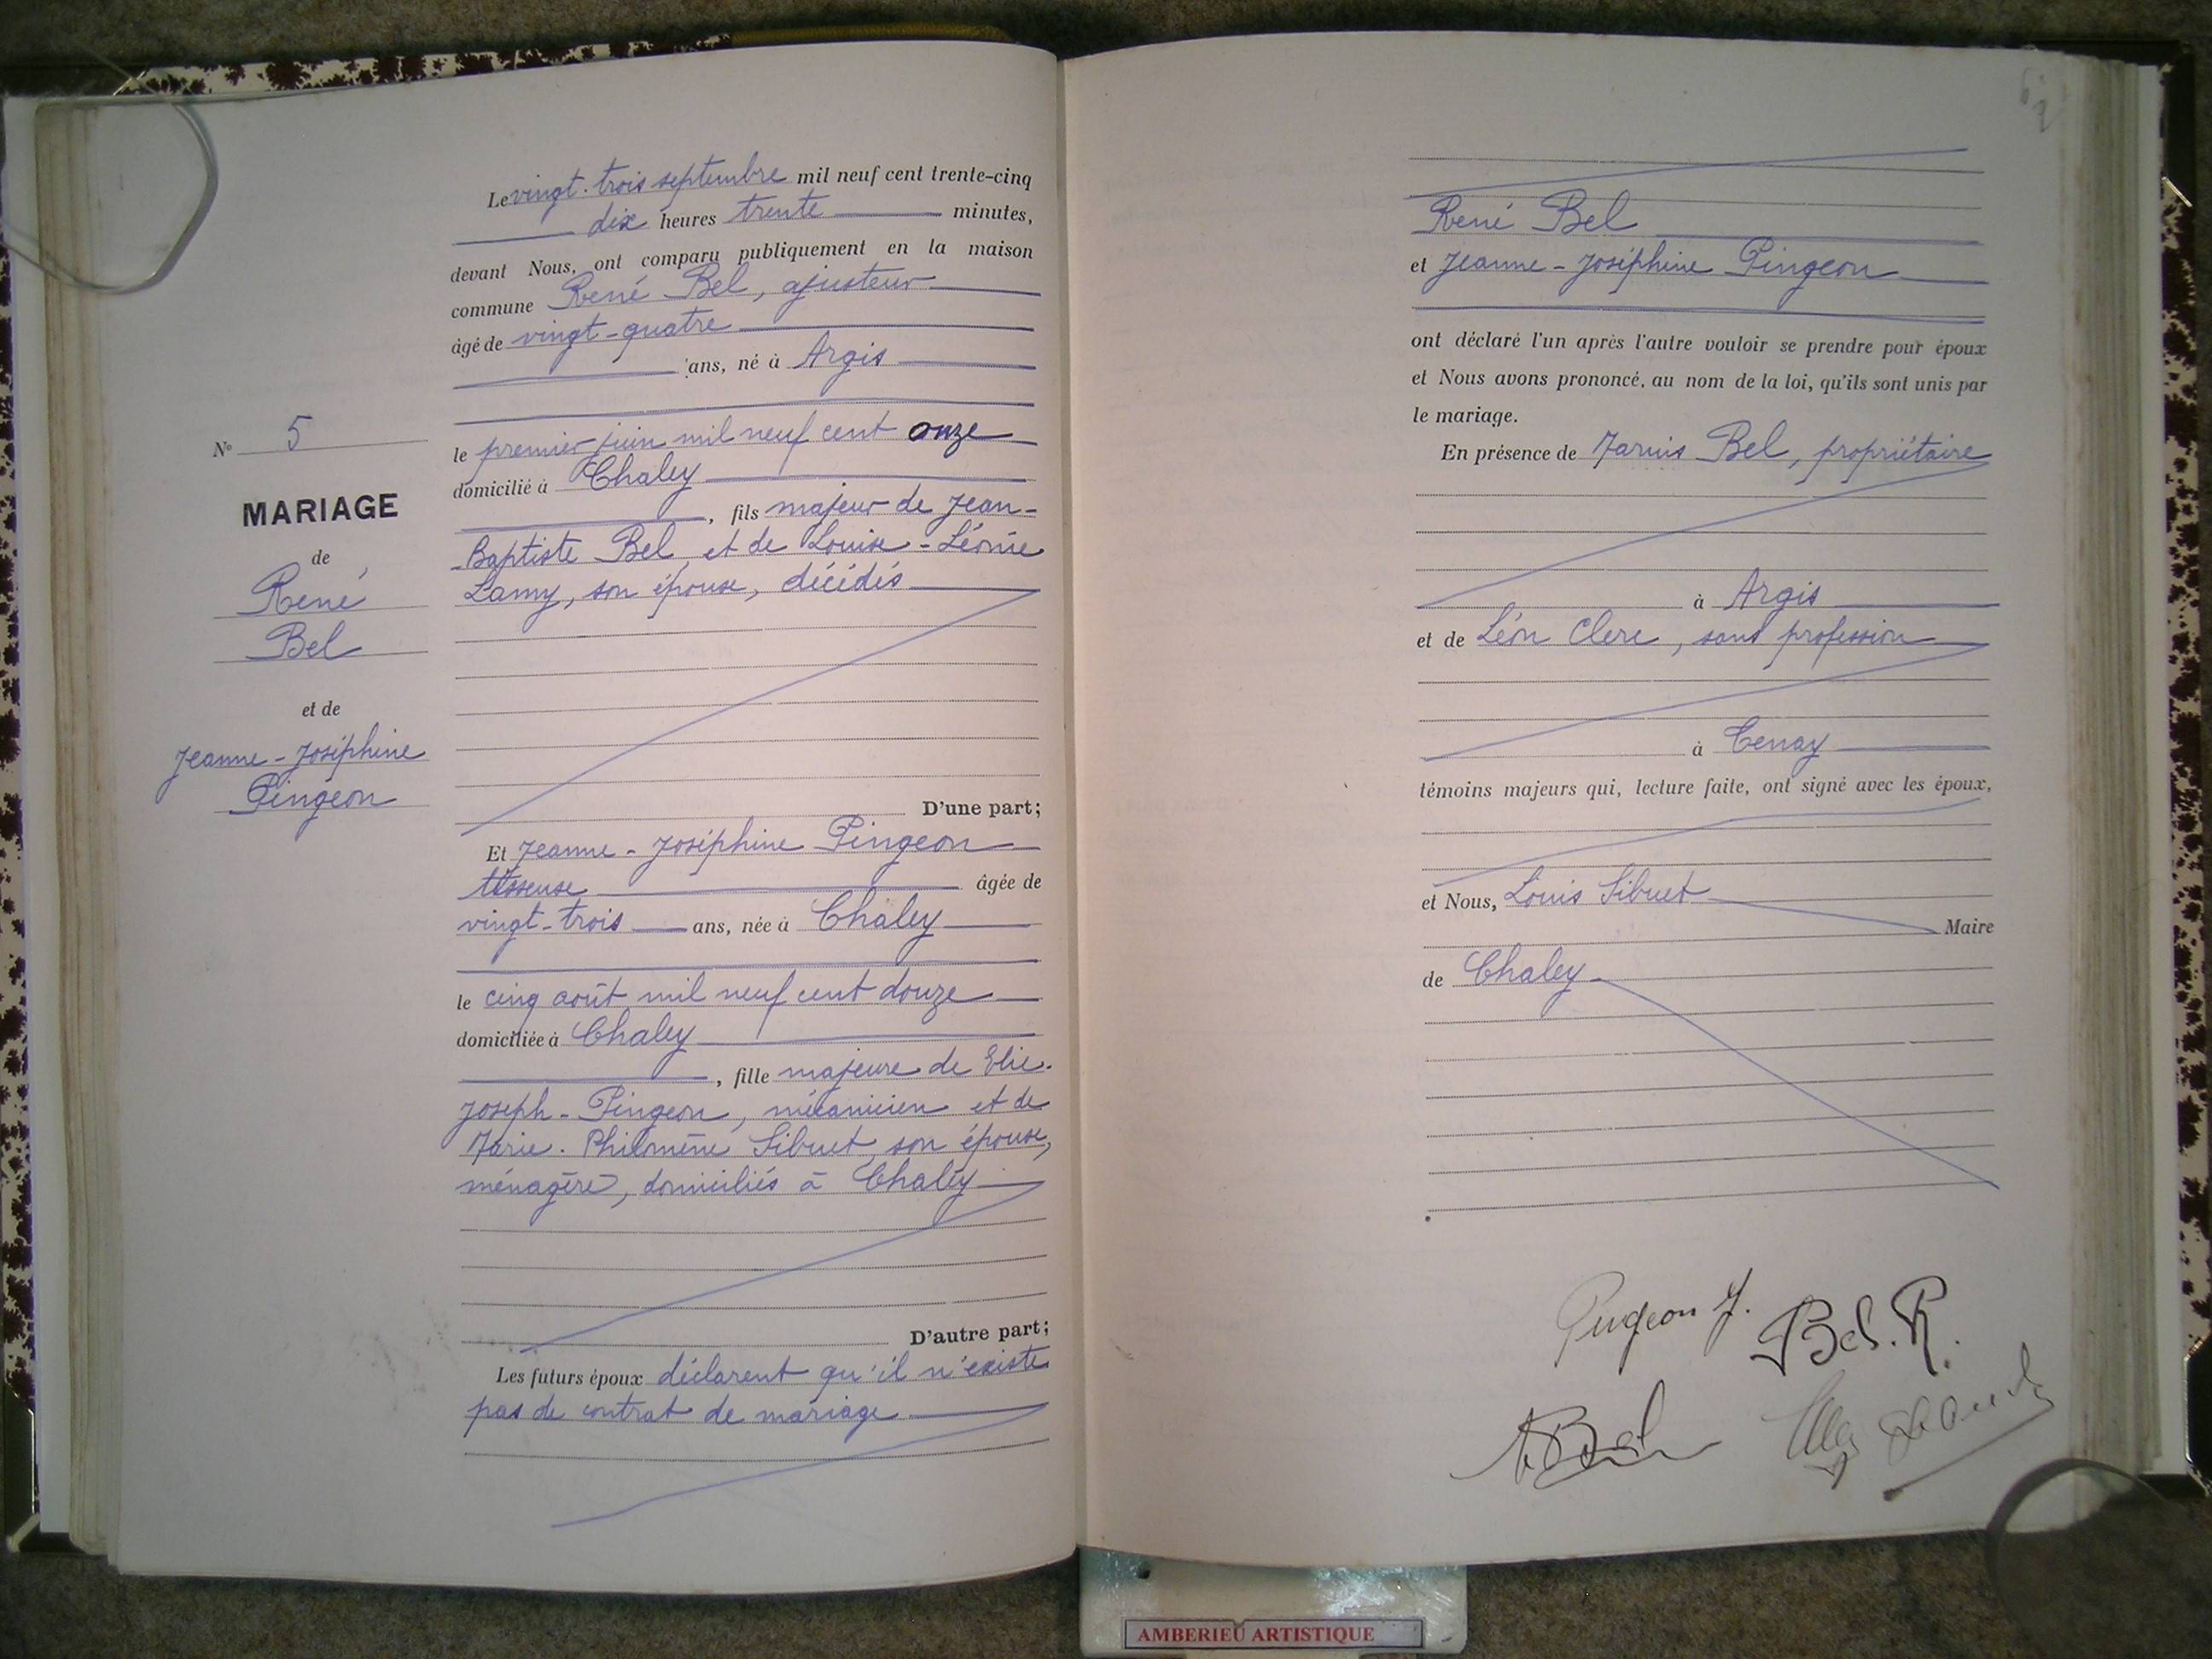 Le vingt-trois septembre mil neuf cent trente-cinq
dix heures trente minutes,
devant Nous, ont comparu publiquement en la maison
commune René Bel, ajusteur
âgé de vingt-quatre
ans, né à Argis
le premier juin mil neuf cent onze
domicilié à Chaley
, fils majeur de Jean-
-Baptiste Bel et de Louise-Léonie
Lamy, son épouse, décédés
D'une part;
Et Jeanne-Joséphine Pingeon
tisseuse âgée de
vingt-trois ans, née à Chaley
le cinq août mil neuf cent douze
domiciliée à Chaley
, fille majeure de Elie-
Joseph-Pingeon, mécanicien et de
Marie-Philomène Sibuet, son épouse,
ménagère, domiciliés à Chaley
D'autre part;
Les futurs époux déclarent qu'il n'existe
pas de contrat de mariage
N° 5
MARIAGE
de
René
Bel
et de
Jeanne-Joséphine
Pingeon
René Bel
et Jeanne-Joséphine Pingeon
ont déclaré l'un après l'autre vouloir se prendre pour époux
et Nous avons prononcé, au nom de la loi, qu'ils sont unis par
le mariage.
En présence de Bel, propriétaire
à Argis
et de Léon Clerc, sans profession
à Tenay
témoins majeurs qui, lecture faite, ont signé avec les époux,
et Nous, Louis Sibuet
Maire
de Chaley
Pingeon J.
Bel. R.
Bel
AMBERIEU ARTISTIQUE